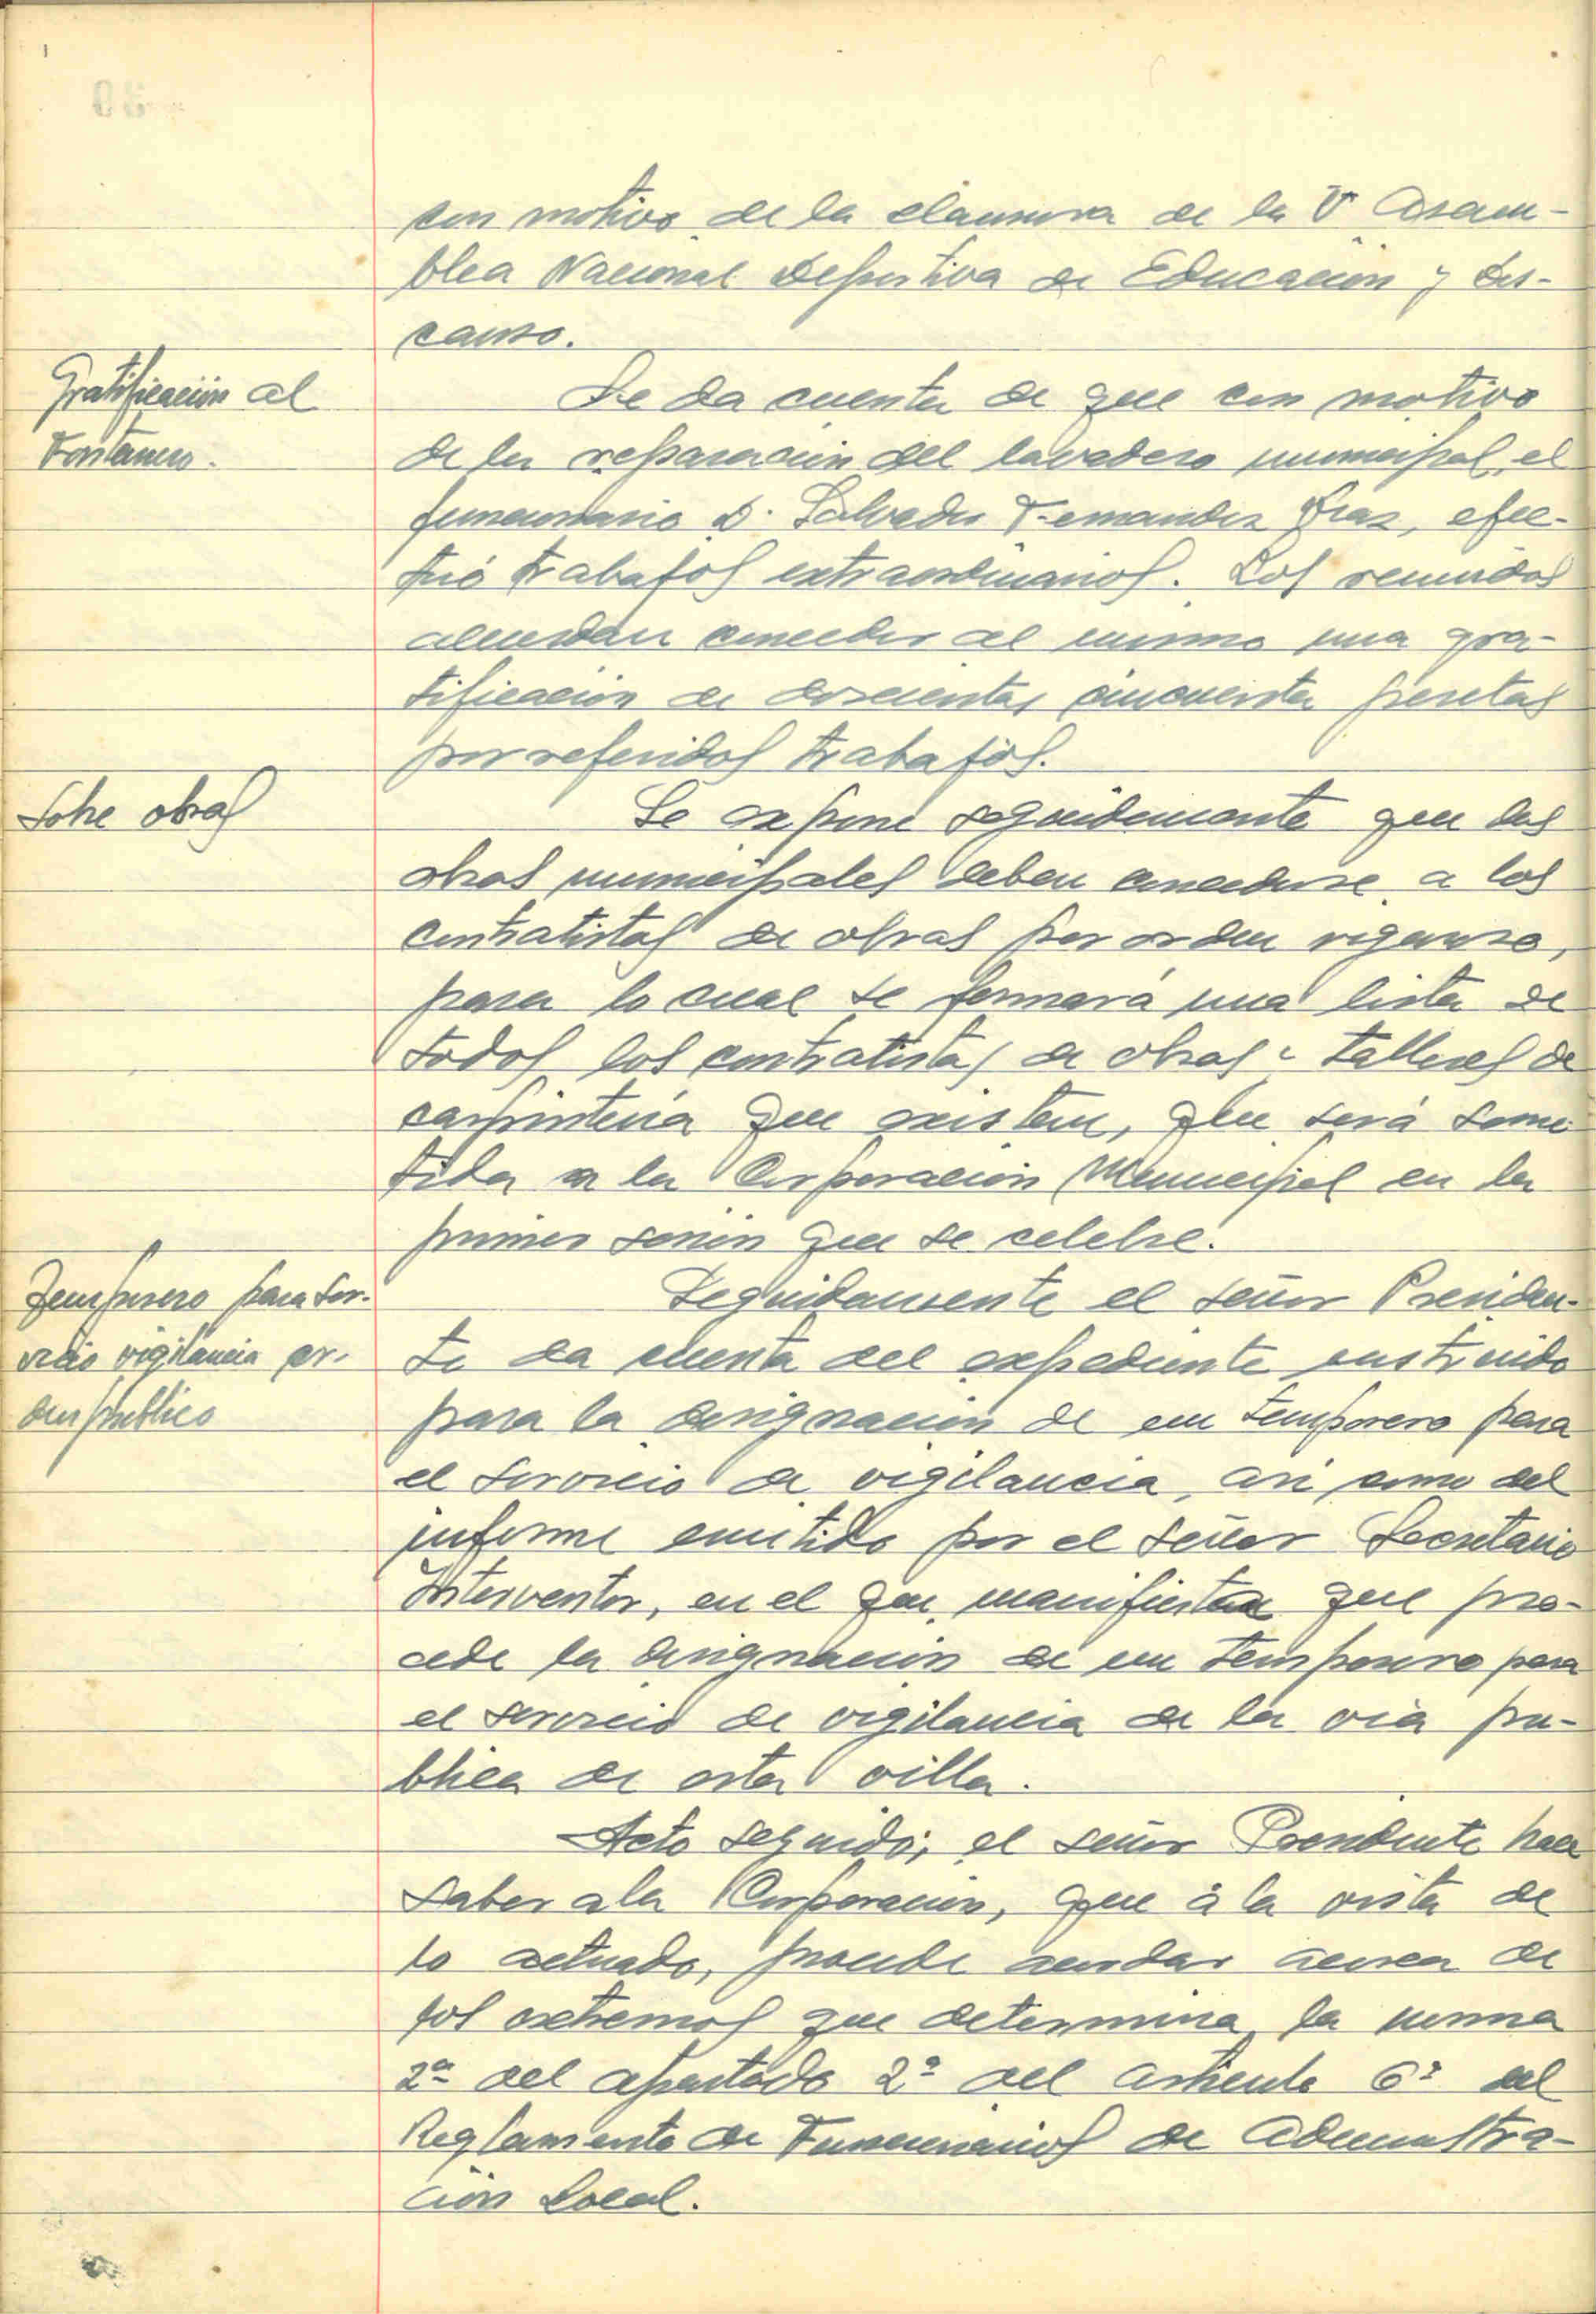 con motivo de la clausura de la V Asam-
blea Nacional Deportiva de Educación y Des-
canso.
Gratificación al
Fontanero.
Se da cuenta de que con motivo
de la reparación del lavadero municipal, el
funcionario D. Salvador Fernandez Diaz, efec-
tuó trabajos extraordinarios. Los reunidos
acuerdan conceder al mismo una gra-
tificación de doscientas cincuenta pesetas
por referidos trabajos.
Sobre obras
Se expone seguidamente que las
obras municipales deben concederse a los
contratistas de obras por orden riguroso,
para lo cual se formará una lista de
todos los contratistas de obras y talleres de
carpintería que existen, que será some-
tida a la Corporación Municipal en la
primer sesión que se celebre.
Temporero para ser-
vicio vigilancia or-
den publico
Seguidamente el señor Presiden-
te da cuenta del expediente instruido
para la designación de un temporero para
el servicio de vigilancia, asi como del
informe emitido por el señor Secretario
Interventor, en el que manifiesta que pro-
cede la designación de un temporero para
el servicio de vigilancia de la via pu-
blica de esta villa.
Acto seguido, el señor Presidente hace
saber a la Corporación, que á la vista de
lo actuado, procede acordar acerca de
los extremos que determina la norma
2ª del apartado 2º del articulo 6º del
Reglamento de Funcionarios de Administra-
ción Local.